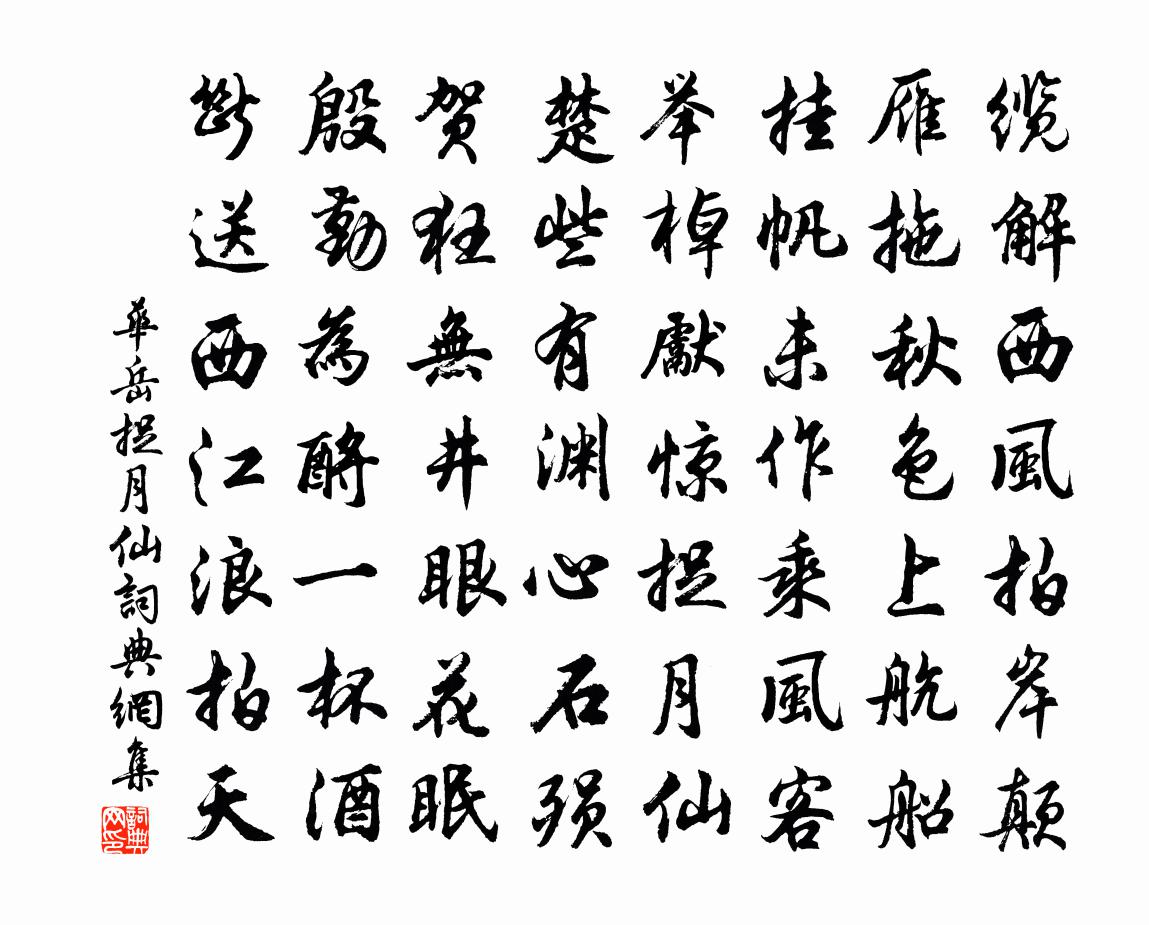 缆解西風拍岸颠
雁拖秋色上航船
挂帆未作乘風客
举棹獻惊捉月仙
楚些有渊心石殒
贺狂無井眼花眠
殷勤為酹一杯酒
斷送西江浪拍天
華岳捉月仙詞典網集
詞典网印